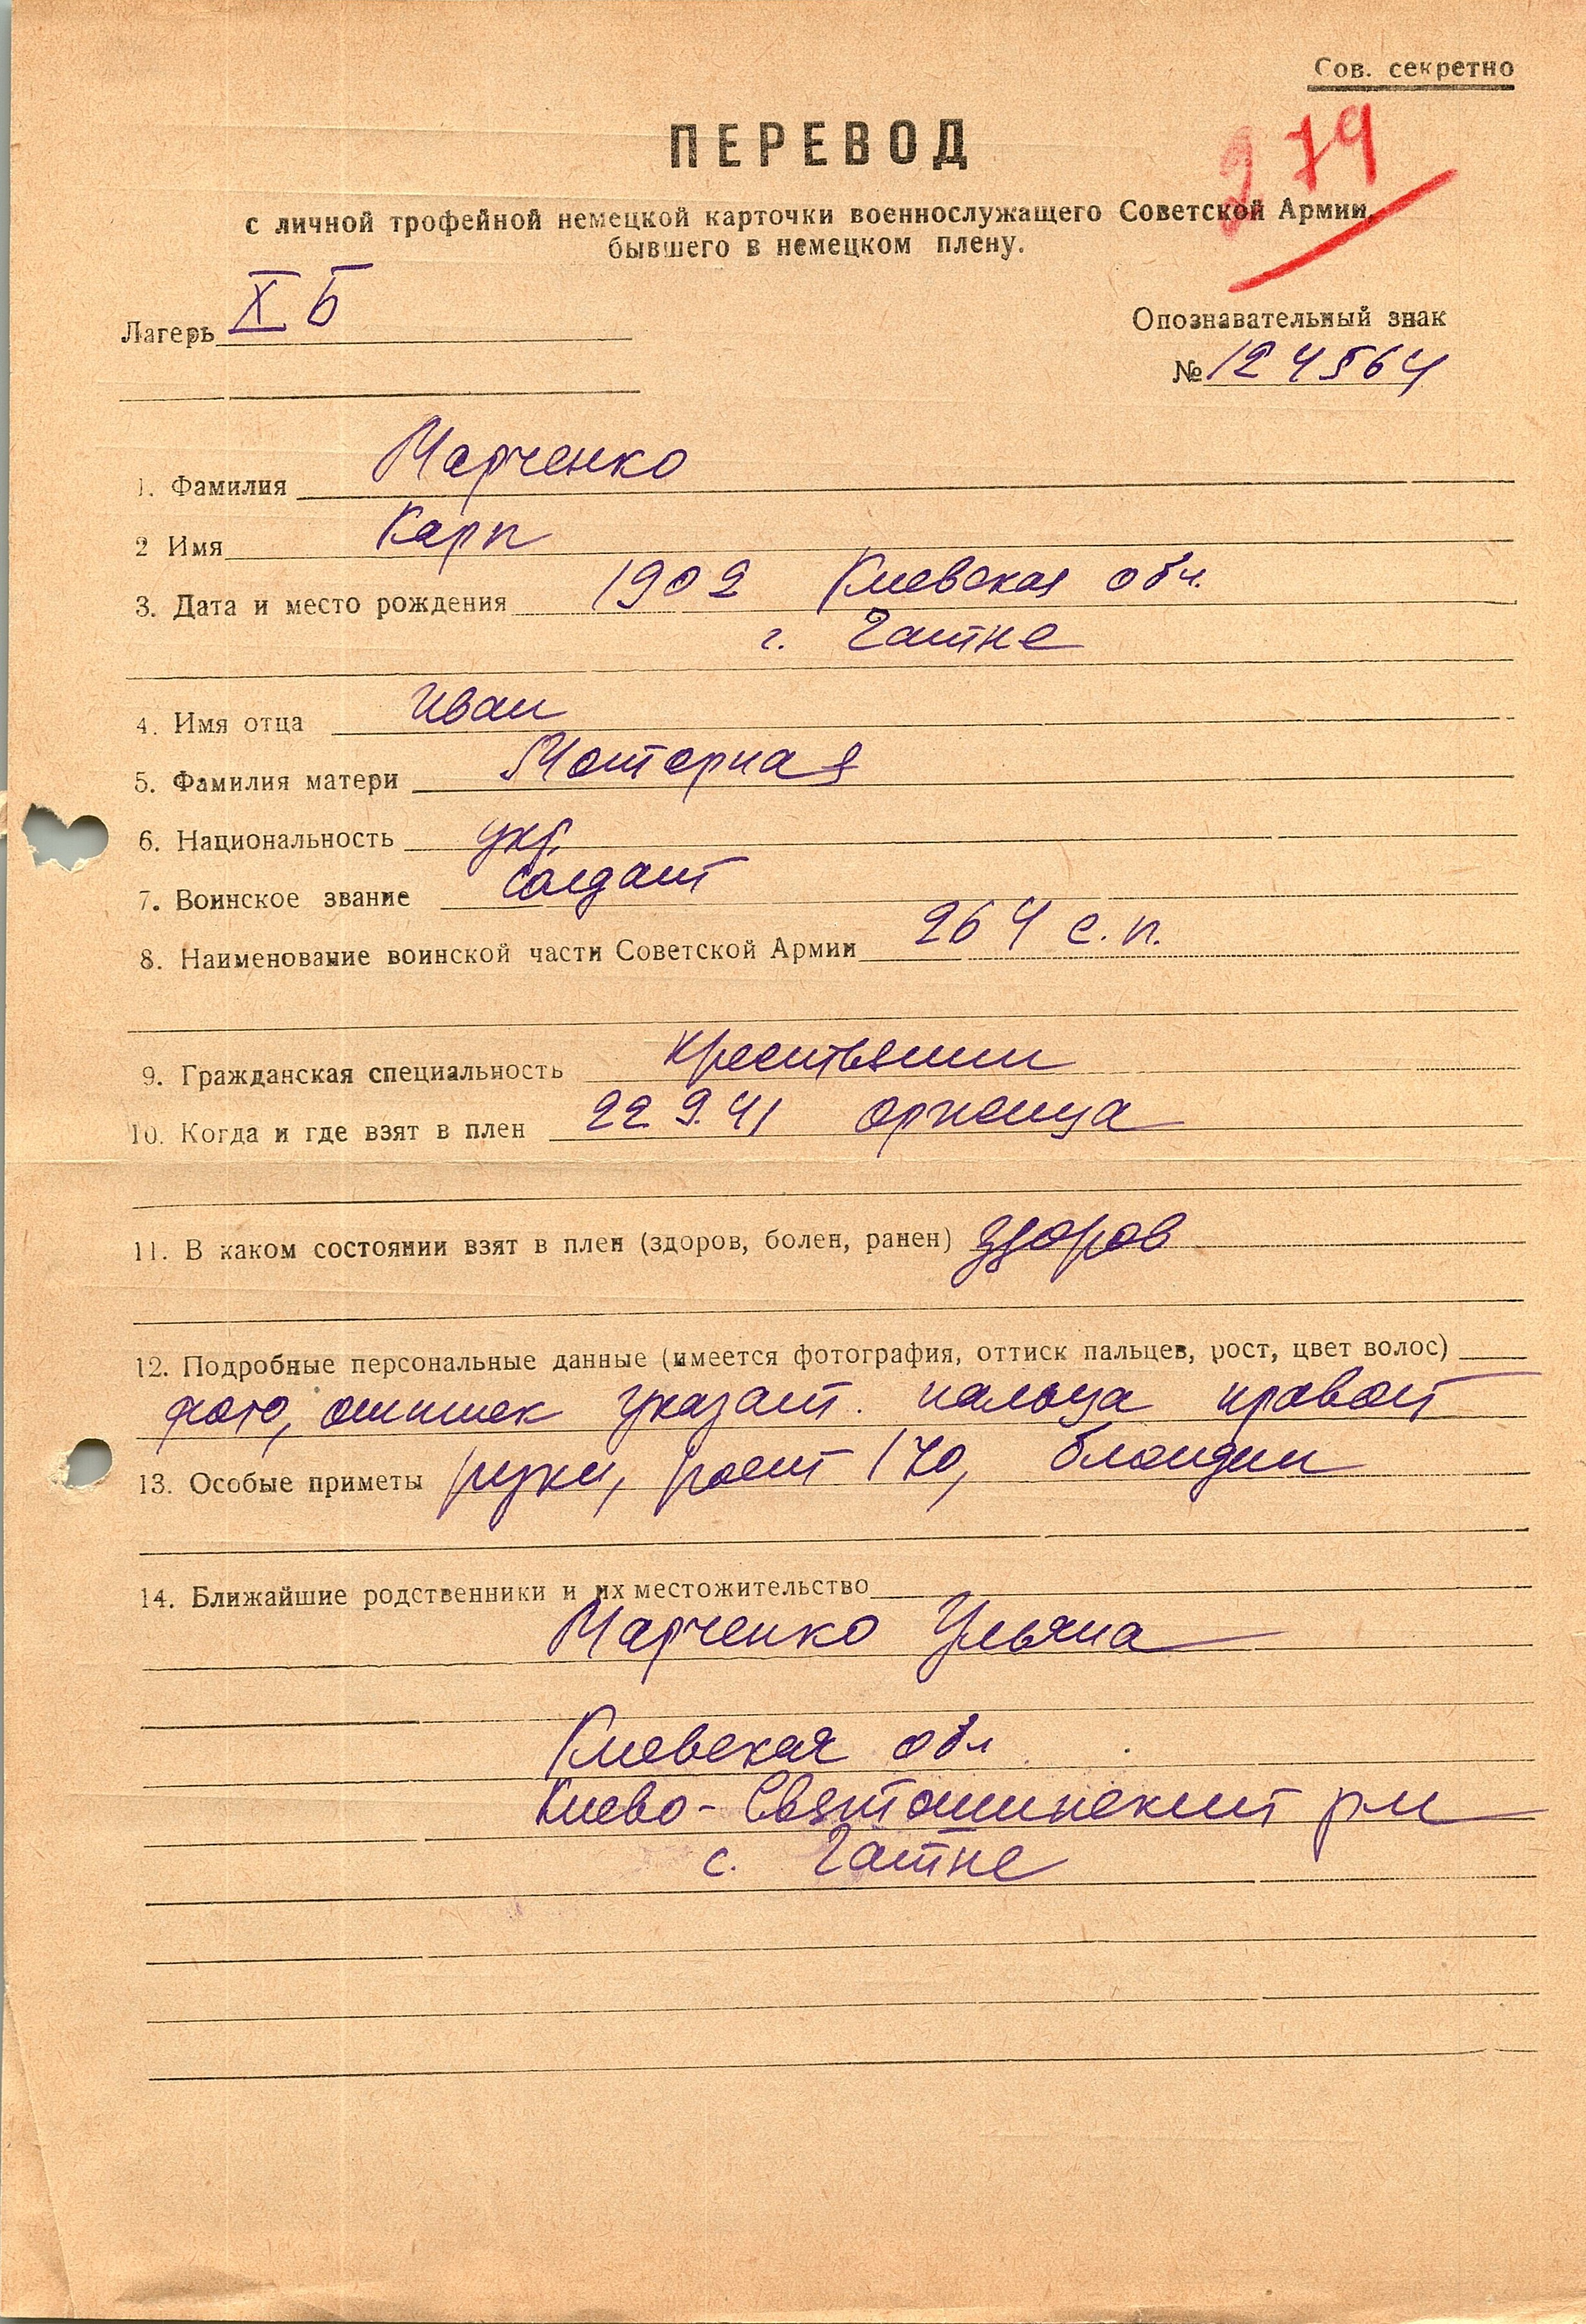 Сов. секретно
279
ПЕРЕВОД
с личной трофейной немецкой карточки военнослужащего Советской Армии,
бывшего в немецком плену.
Лагерь X Б
Опознавательный знак
№ 124564
1. Фамилия Марченко
2 Имя Карп
3. Дата и место рождения 1902 Киевская обл.
г. Гатне
4. Имя отца Иван
5. Фамилия матери Моторная
6. Национальность укр.
7. Воинское звание солдат
8. Наименование воинской части Советской Армии 264 с.п.
9. Гражданская специальность крестьянин
10. Когда и где взят в плен 22.9.41 Оржица
11. В каком состоянии взят в плен (здоров, болен, ранен) здоров
12. Подробные персональные данные (имеется фотография, оттиск пальцев, рост, цвет волос)
фото, оттиск указат. пальца правой
13. Особые приметы руки, рост 170, блондин
14. Ближайшие родственники и их местожительство
Марченко Ульяна
Киевская обл
Киево-Святошинский р-н
с. Гатне